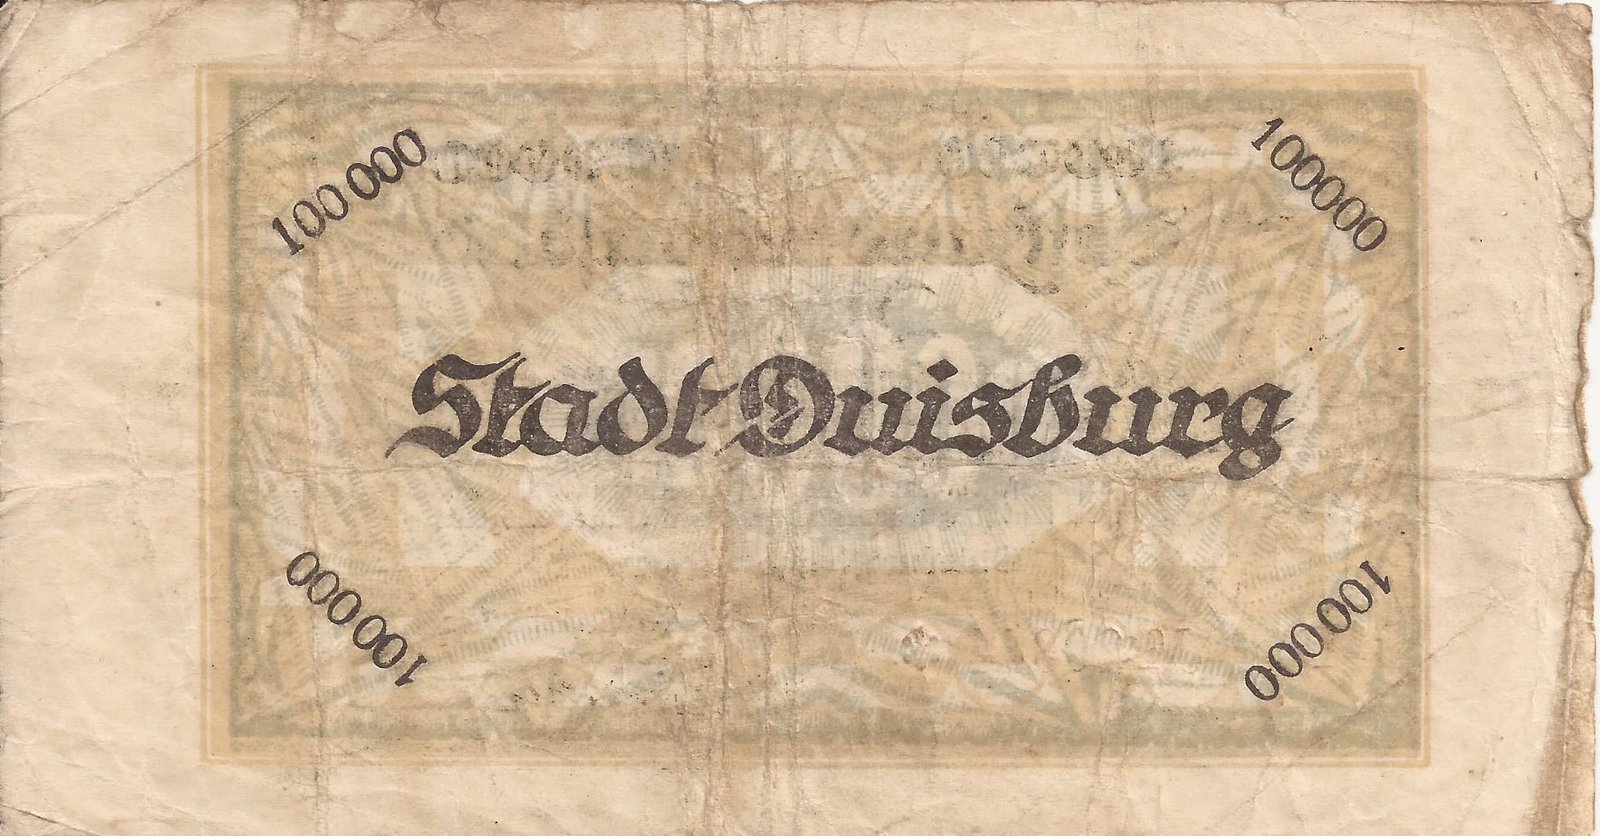 100 000
100000
Stadt Duisburg
100000
100000